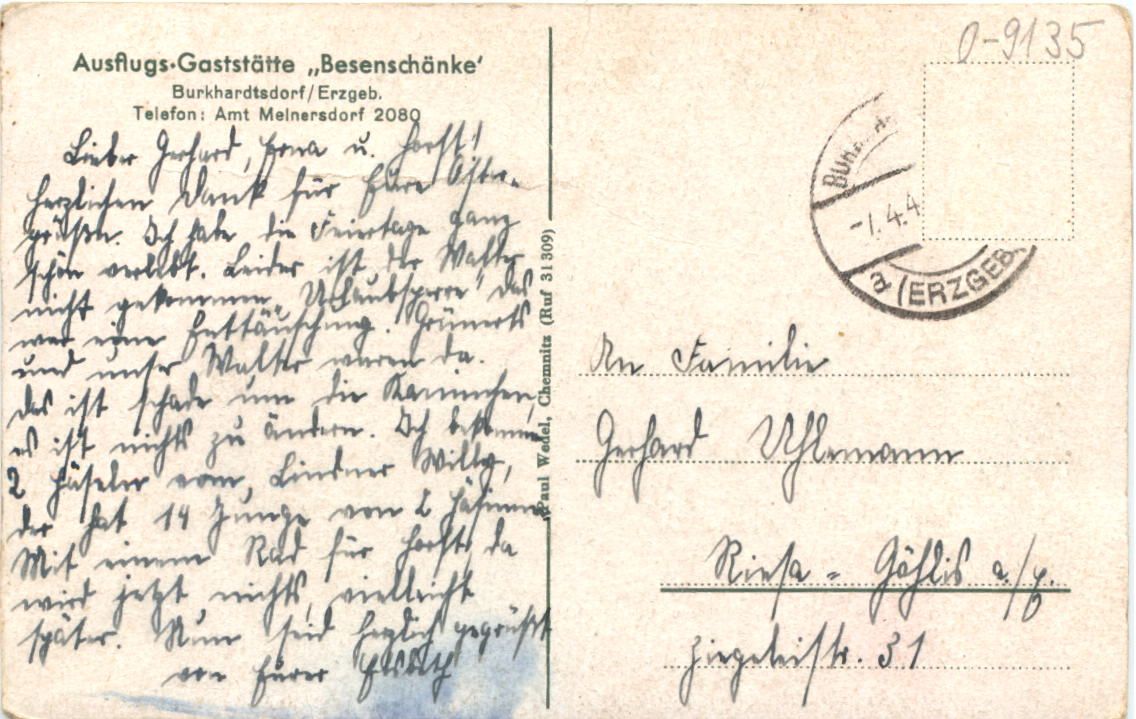 Ausflugs-Gaststätte „Besenschänke'
Burkhardtsdorf/Erzgeb.
Telefon: Amt Meinersdorf 2080
Lieber Gerhard, Erna u. Horst!
Herzlichen Dank für Eure Oster-
grüße. Ich habe die Feiertage ganz
schön verlebt. Leider ist der Walter
nicht gekommen „Urlaubsperre" das
war eine Enttäuschung. Grünerts
und unser Walter waren da.
das ist schade um die Kaninchen,
es ist nichts zu ändern. Ich bekomme
2 Häseln vom Lindner Willy,
der hat 14 Junge von 2 Häsinnen
Mit einem Rad für Horst, da
wird jetzt nichts, vielleicht
später. Nun seid herzlich gegrüßt
von Eurer Elsbeth
Paul Wedel, Chemnitz (Ruf 31309)
0-9135
BUR
-7.4.4
a (ERZGEB.
An Familie
Gerhard Uhlemann
Riesa - Göhlis a./E.
Ziegeleistr. 31